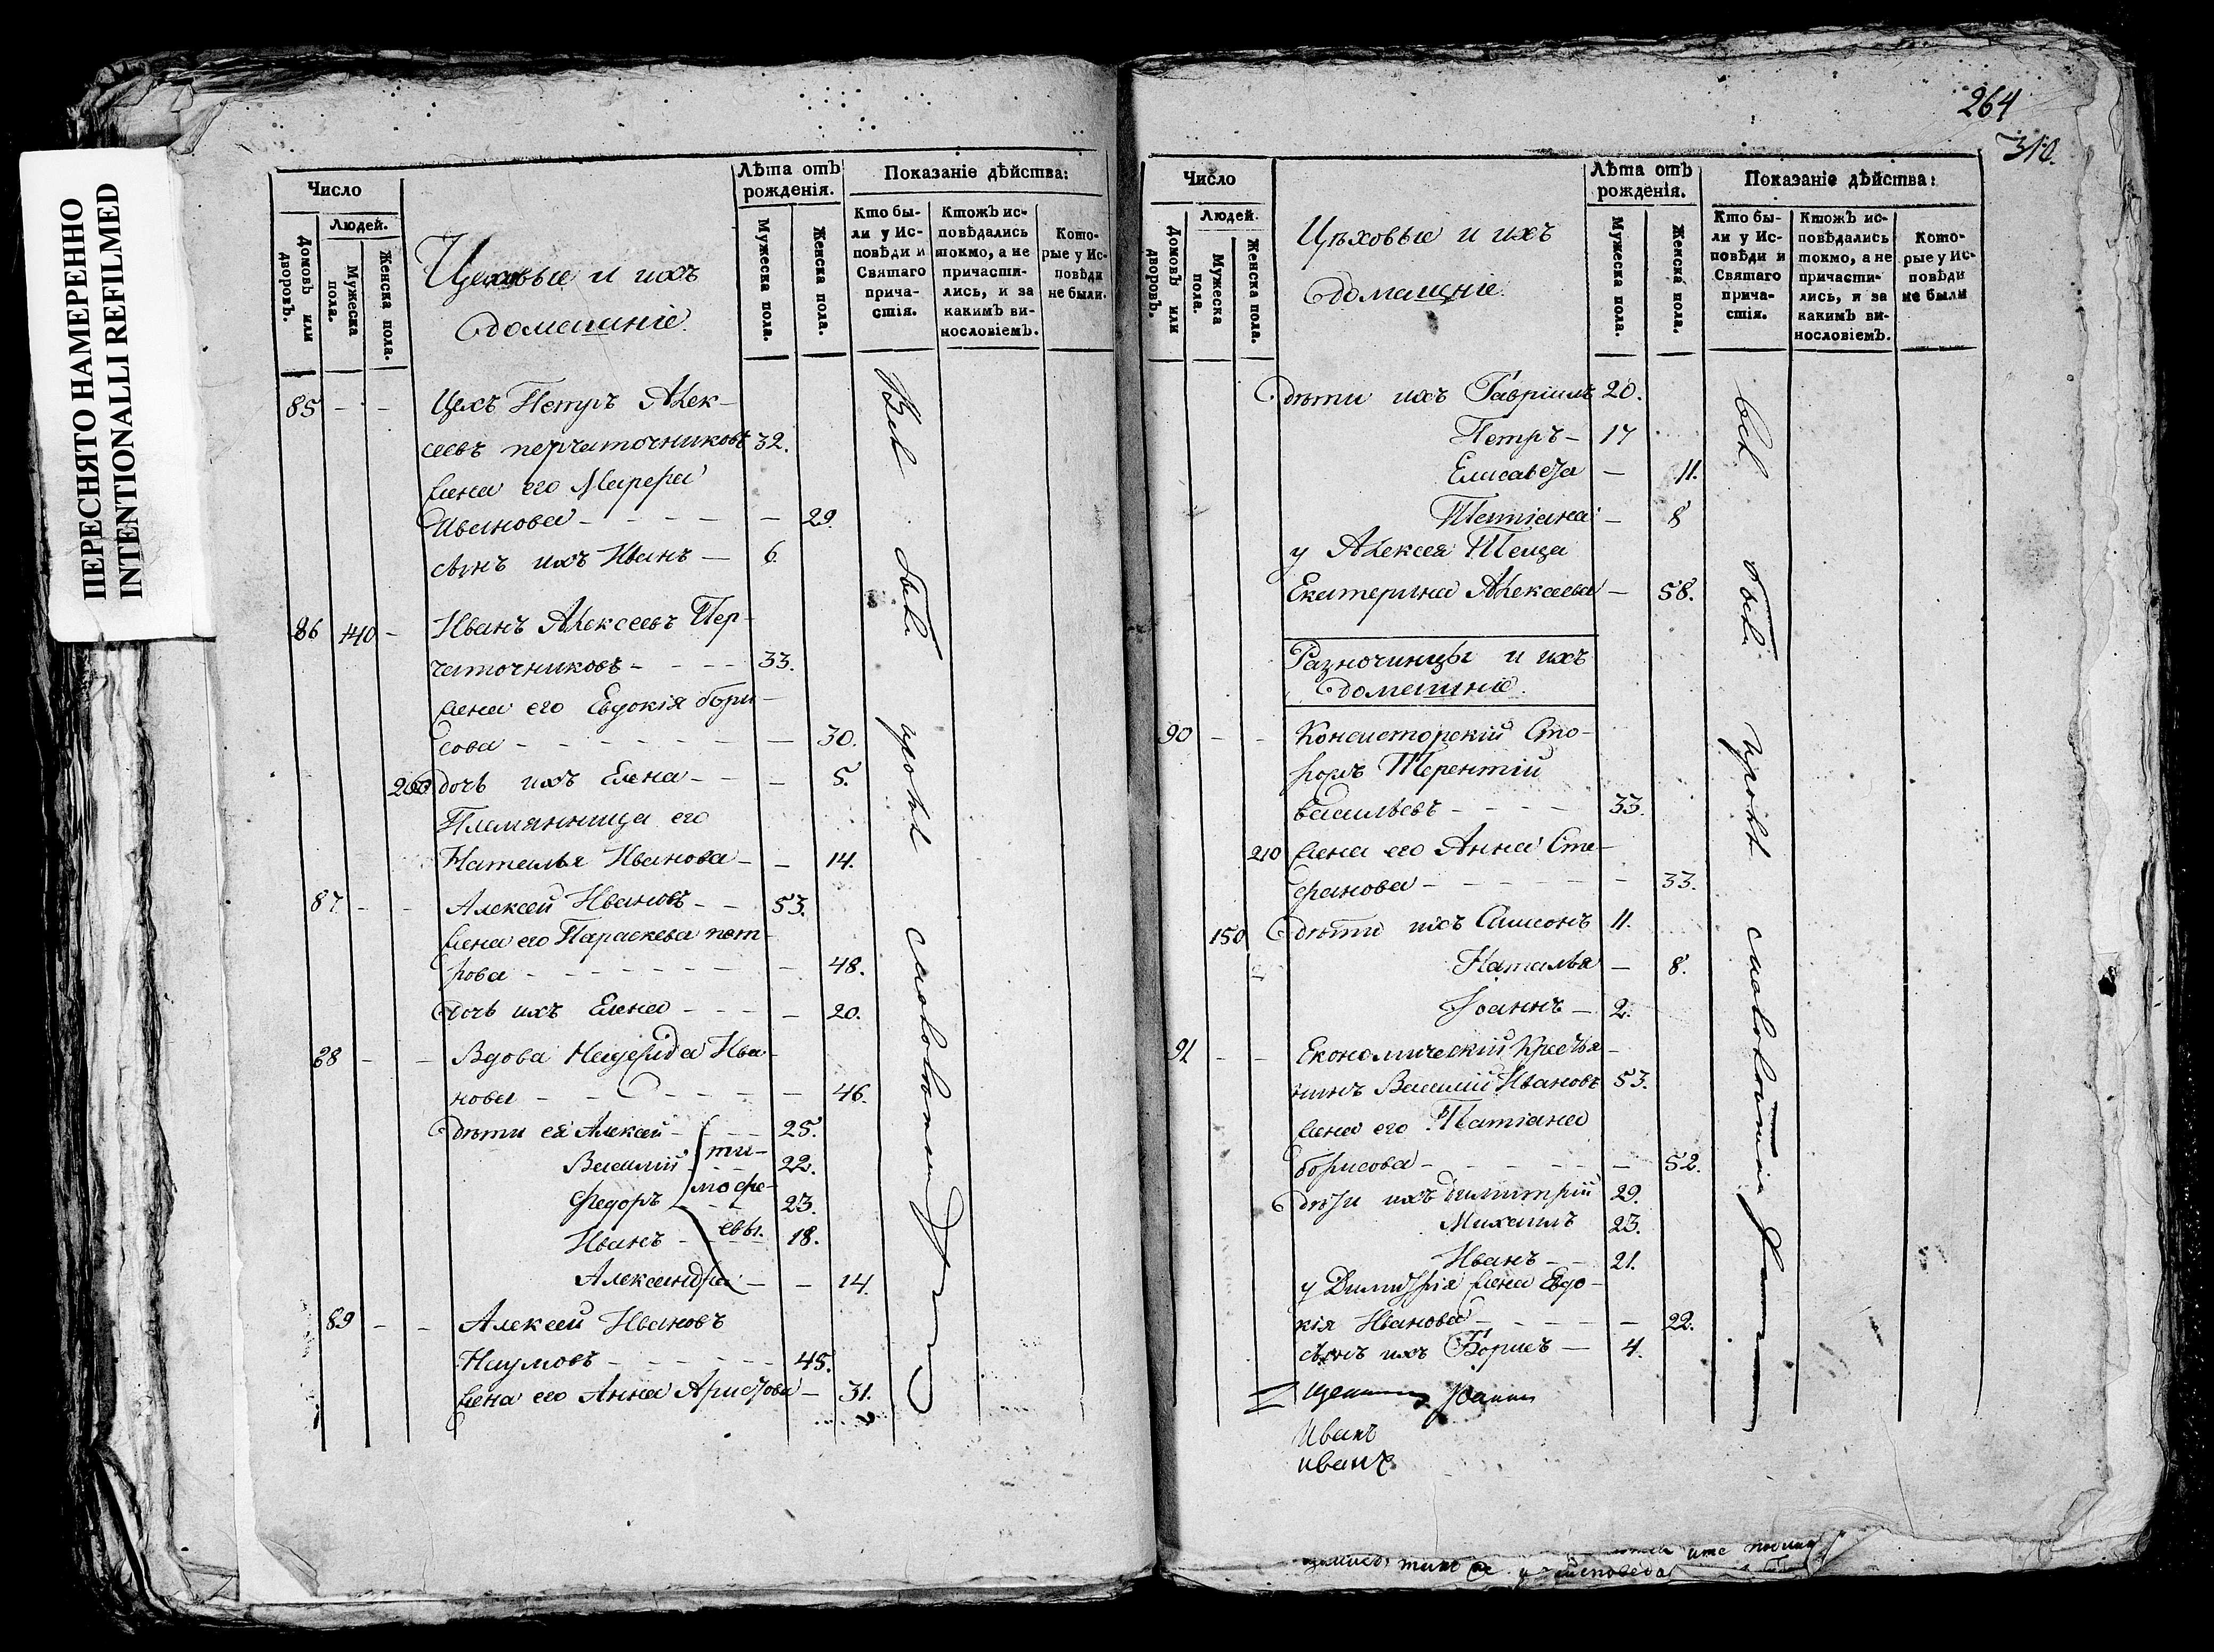 ПЕРЕСНЯТО НАМЕРЕННО
INTENTIONALLI REFILMED
Число
Людей.
Домовъ или дворовъ.
Мужеска пола.
Женска пола.
Цеховые и ихъ
домашніе.
Лѣта отъ
рожденія.
Мужеска пола.
Женска пола.
Показаніе дѣйства:
Кто бы-
ли у Ис-
повѣди и
Святаго
прича-
стія.
Ктожъ ис-
повѣдались
токмо, а не
причасти-
лись, и за
какимъ ви-
нословіемъ.
Кото-
рые у Ис-
повѣди
не были.
85 - - Цехъ Петръ Алек-
сеевъ перчаточниковъ 32.
жена его Марфа
Иванова - - - - - 29.
сынъ ихъ Иванъ - 6.
86 140 - Иванъ Алексеевъ Пер-
чаточниковъ - - - - 33.
жена его Евдокія бори-
сова - - - - - - - 30.
200 дочь ихъ Елена - - - 5.
Племянница его
Наталья Иванова - - 14.
87. - - Алексей Ивановъ - - 53.
жена его Параскева пет-
рова - - - - - - - 48.
дочь ихъ Елена - - - - 20.
88 - - Вдова Ива-
нова - - - - - - 46.
дѣти ея Алексей - - - 25.
Василий ти- 22.
Федоръ мофе- 23.
Иванъ - евы. 18.
Александра - - 14.
89 - - Алексей Ивановъ
Наумовъ - - - - - - 45.
жена его Анна Аристова - 31.
Всѣ были кромѣ
264
310.
Число
Людей.
Домовъ или дворовъ.
Мужеска пола.
Женска пола.
Цѣховые и ихъ
домашніе.
Лѣта отъ
рожденія.
Мужеска пола.
Женска пола.
Показаніе дѣйства:
Кто бы-
ли у Ис-
повѣди и
Святаго
прича-
стія.
Ктожъ ис-
повѣдались
токмо, а не
причасти-
лись, и за
какимъ ви-
нословіемъ.
Кото-
рые у Ис-
повѣди
не были
дѣти ихъ Гавріилъ 20.
Петръ - 17
Елисавета - 11.
Татіана - 8
у Алексея Теща
Екатерина Алексеева - 58.
Разночинцы и ихъ
домашніе.
90 - - Консисторскій Сто-
рожъ Терентій
Васильевъ - - - - 33.
210 жена его Анна Сте-
фанова - - - - - - 33.
150 дѣти ихъ Самсонъ 11.
- Наталья - 8.
Іоаннъ - 2.
91 - - Економическій Крестья-
нинъ Василий Ивановъ 53.
жена его Татіана
борисова - - - - - - 52.
дѣти ихъ димитрій 29.
Михаилъ 23.
Иванъ - - 21.
у Димитрія жена Евдо-
кія Иванова - - - - - 22.
сынъ ихъ Борисъ - 4.
Всѣ были кромѣ
Іоаннъ
Иванъ
иванъ